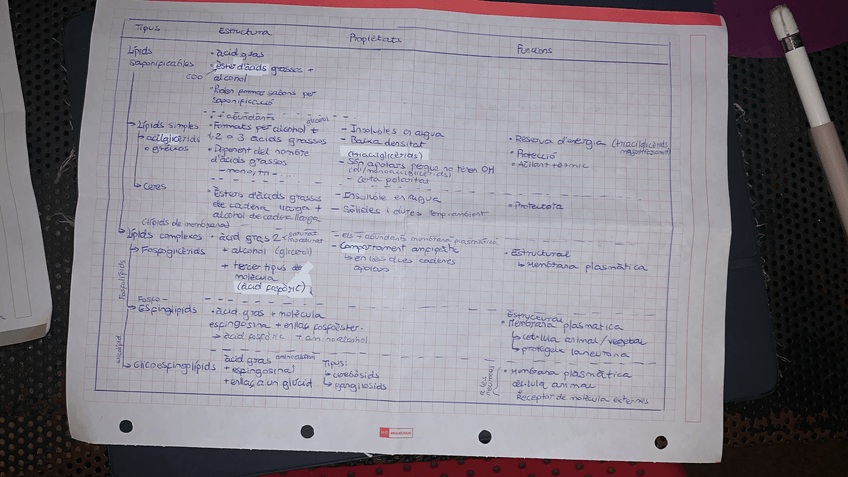 Tipus
Estructura
Propietats
Funcions
Lípids
saponificables
• àcid gras
• Ester d'àcids grassos +
alcohol
COO
• Poden formar sabons per
saponificació
• + abundants
↳ Lípids simples
↳ acilglicèrids
o greixos
• Formats per alcohol +
glicerol
1, 2 o 3 àcids grassos
• Depenent del nombre
d'àcids grassos
- mono, tri -
- Insolubles en aigua
- Baixa densitat
(triacilglicèrids)
- Són apolars perquè no tenen OH
(di/monoacilglicèrids)
- certa polaritat
• Reserva d'energia (triacilglicèrids
• Protecció
• Aïllant tèrmic
↳ Ceres
• Èsters d'àcids grassos
de cadena llarga +
alcohol de cadena llarga
- Insoluble en aigua
- Sòlides i dures temp. ambient
• Protectora
(Lípids de membrana)
↳ Lípids complexos
↳ Fosfoglicèrids
Fosfolípids
• àcid gras 2 < saturat
insaturat
+ alcohol (glicerol)
+ tercer tipus de
molècula
(àcid fosfòric)
- els + abundants membrana plasmàtica
- Comportament amfipàtic
↳ en les dues cadenes
apolars
• Estructural
↳ Membrana plasmàtica
Fosfo-
↳ Esfingolípids
• àcid gras + molècula
espingosina + enllaç fosfoèster
→ àcid fosfòric + aminoalcohol
Estructural
• Membrana plasmàtica
↳ cèl·lula animal/vegetal
↳ protegeix la neurona
↳ Glicoespingolípids
àcid gras
aminoalcohol
+ espingosina
+ enllaç a un glúcid
Tipus:
↳ cerebòsids
↳ gangliòsids
• Membrana plasmàtica
cèl·lula animal
Receptor de molècules externes